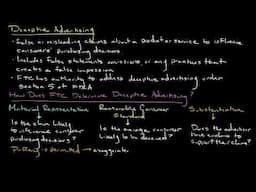 Deceptive Advertising
• False or misleading claims about a product or service to influence
consumers' purchasing decisions
• Includes false statements, omissions, or any practices that
create a false impression
• FTC has authority to address deceptive advertising under
Section 5 of FTCA
How Does FTC Determine Deceptive Advertising?
Material Representation Reasonable Consumer Standard Substantiation
Is the claim likely to influence consumer purchasing decisions?
Is the average consumer likely to be deceived?
Does the advertiser have evidence to support the claim?
Puffery is permitted → exaggerate